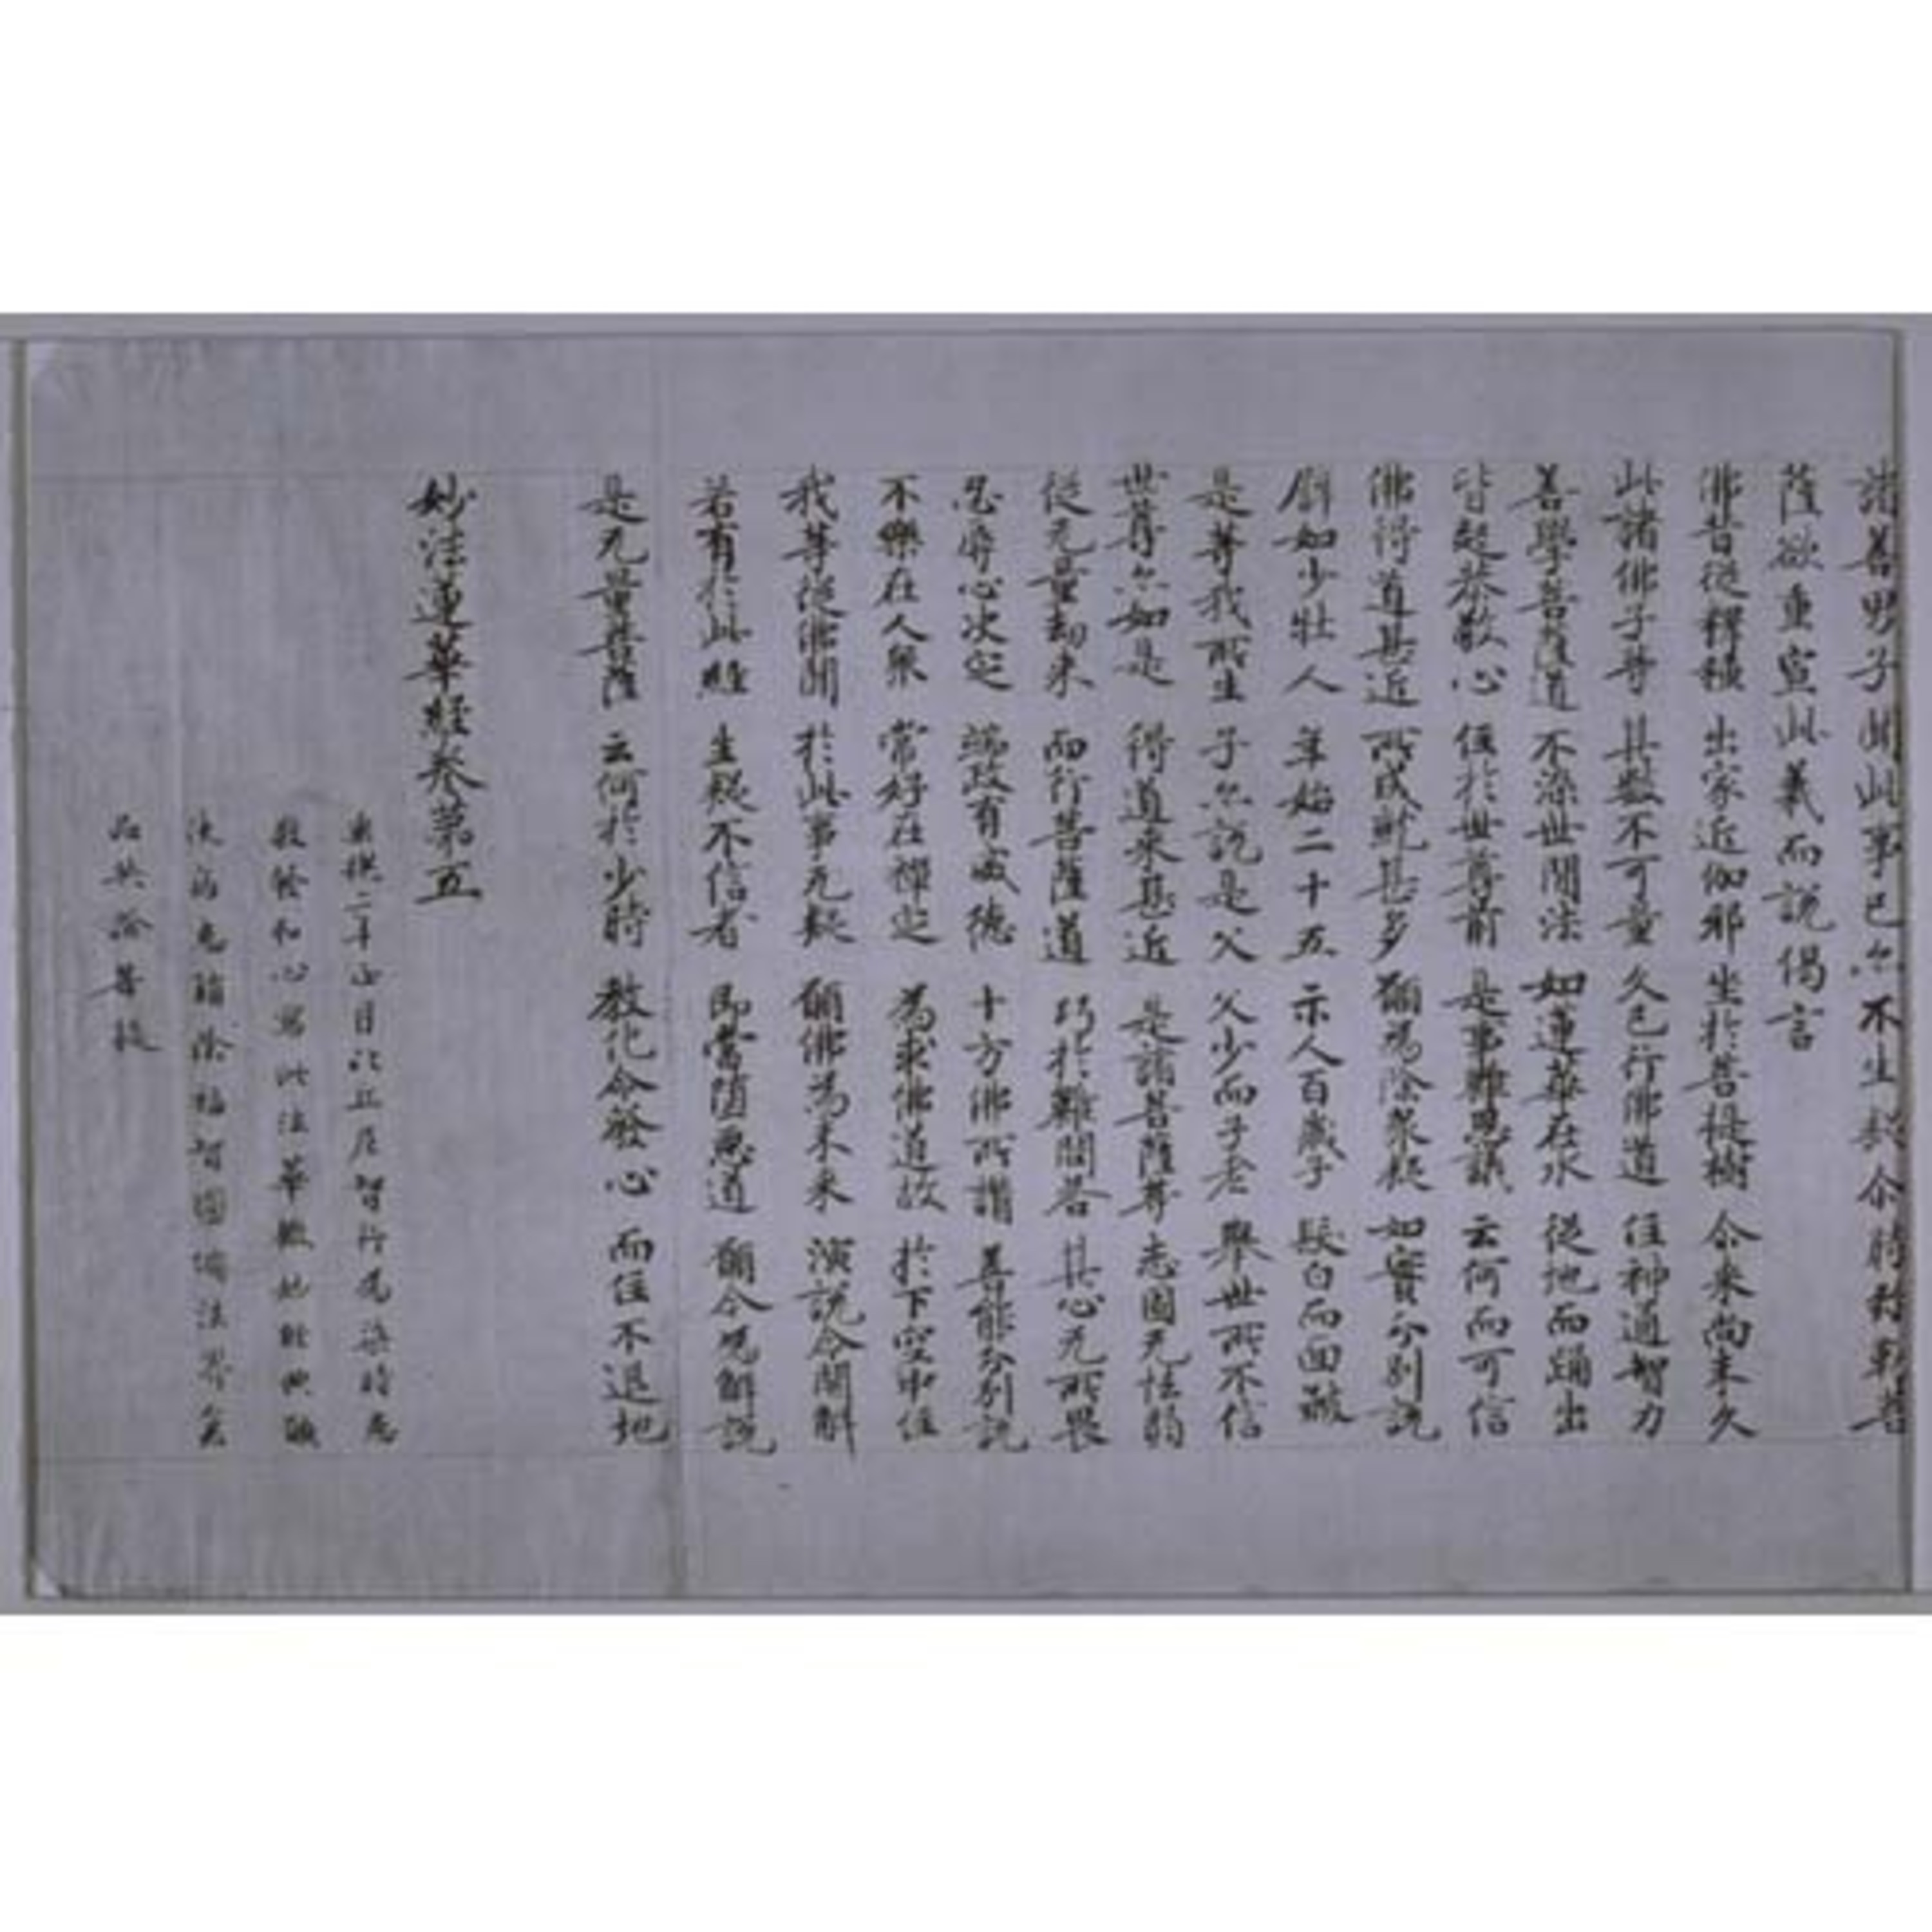 諸善男子聞此事已亦不生疑尒時弥勒菩
薩欲重宣此義而說偈言
佛昔從釋種 出家近伽耶 坐於菩提樹 尒来尚未久
此諸佛子等 其數不可量 久已行佛道 住神通智力
善學菩薩道 不染世間法 如蓮華在水 從地而踊出
皆起恭敬心 住於世尊前 是事難思議 云何而可信
佛得道甚近 所成就甚多 願為除衆疑 如實分別說
譬如少壯人 年始二十五 示人百歲子 髮白而面皺
是等我所生 子亦說是父 父少而子老 舉世所不信
世尊亦如是 得道来甚近 是諸菩薩等 志固无怯弱
從无量劫来 而行菩薩道 巧於難問荅 其心无所畏
忍辱心决定 端政有威德 十方佛所讚 善能分別說
不樂在人衆 常好在禪定 為求佛道故 於下空中住
我等從佛聞 於此事无疑 願佛為未来 演說令開解
若有於此經 生疑不信者 即當墮惡道 願今為解說
是无量菩薩 云何於少時 教化令發心 而住不退地
妙法蓮華經卷第五
二年 日比丘尼智行為染時患
發心寫此法華
病患 除福智圓備法界
共 菩提